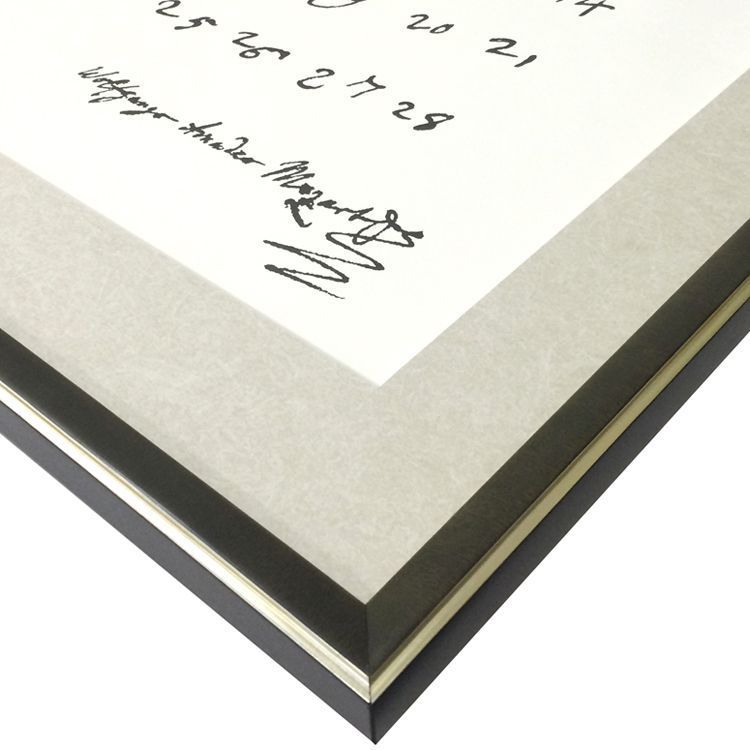 14
20 21
25 26 27 28
Wolfgango Amadeo Mozart